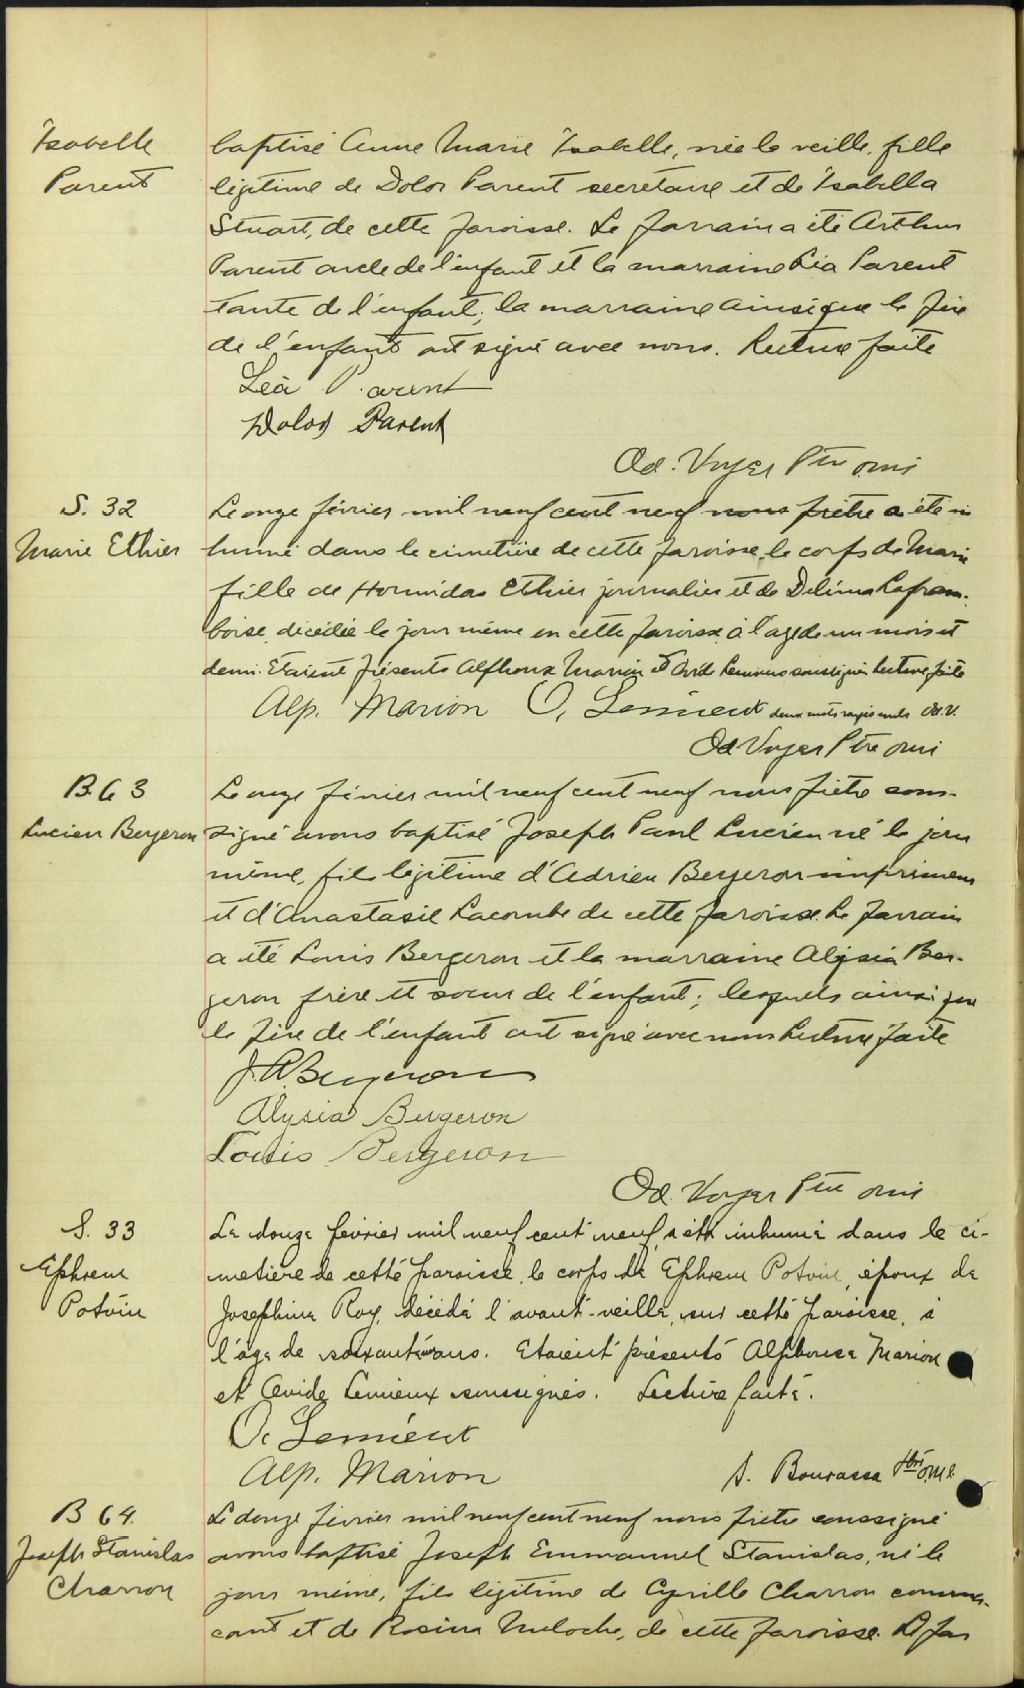 Isabelle
Parent
baptisé Anne Marie Isabelle, née la veille, fille
légitime de Dolor Parent secrétaire et de Isabella
Stuart, de cette paroisse. Le parrain a été Arthur
Parent oncle de l'enfant et la marraine Léa Parent
tante de l'enfant; la marraine ainsi que le père
de l'enfant ont signé avec nous. Lecture faite
Léa Parent
Dolor Parent
Od. Voyer Ptre omi
S. 32
Marie Ethier
Le onze février mil neuf cent neuf nous prêtre a été in
humé dans le cimetière de cette paroisse, le corps de Marie
fille de Hormidas Ethier journalier et de Délima Lafram-
boise, décédée le jour même en cette paroisse à l'age de un mois et
demi. Etaient présents Alphonse Marion et Ovid Lemieux soussignés Lecture faite
Alp. Marion O. Lemieux deux mots rayés nuls Od. V.
Od Voyer Ptre omi
B. 63
Lucien Bergeron
Le onze février mil neuf cent neuf nous prêtre sous-
signé avons baptisé Joseph Paul Lucien né le jour
même, fils légitime d'Adrien Bergeron imprimeur
et d'Anastasie Lacombe de cette paroisse. Le parrain
a été Louis Bergeron et la marraine Alysia Ber-
geron frère et soeur de l'enfant; lesquels ainsi que
le père de l'enfant ont signé avec nous Lecture faite
J. A. Bergeron
Alysia Bergeron
Louis Bergeron
Od. Voyer Ptre omi
S. 33
Ephrem
Potvin
Le douze février mil neuf cent neuf, a été inhumé dans le ci-
metière de cette paroisse, le corps de Ephrem Potvin, époux de
Josephine Roy, décédé l'avant-veille, sur cette paroisse, à
l'âge de soixante ans. Etaient présents Alphonse Marion
et Ovide Lemieux soussignés. Lecture faite.
O. Lemieux
Alp. Marion
A. Bourassa ptre o.m.i.
B 64.
Joseph Stanislas
Charron
Le douze février mil neuf cent neuf nous prêtre soussigné
avons baptisé Joseph Emmanuel Stanislas, né le
jour même, fils légitime de Cyrille Charron commer-
cant et de Rosina Meloche, de cette paroisse. Le par